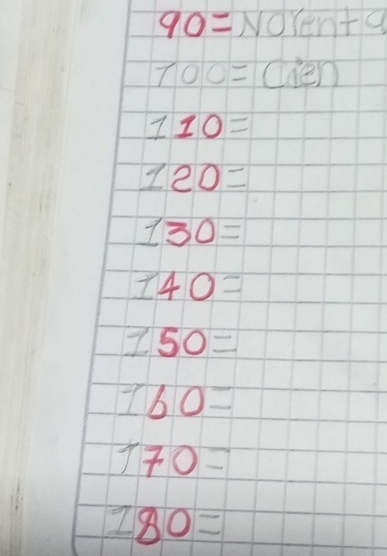 90=Noventa
100=Cien
110=
120=
130=
140=
150=
160=
170=
180=